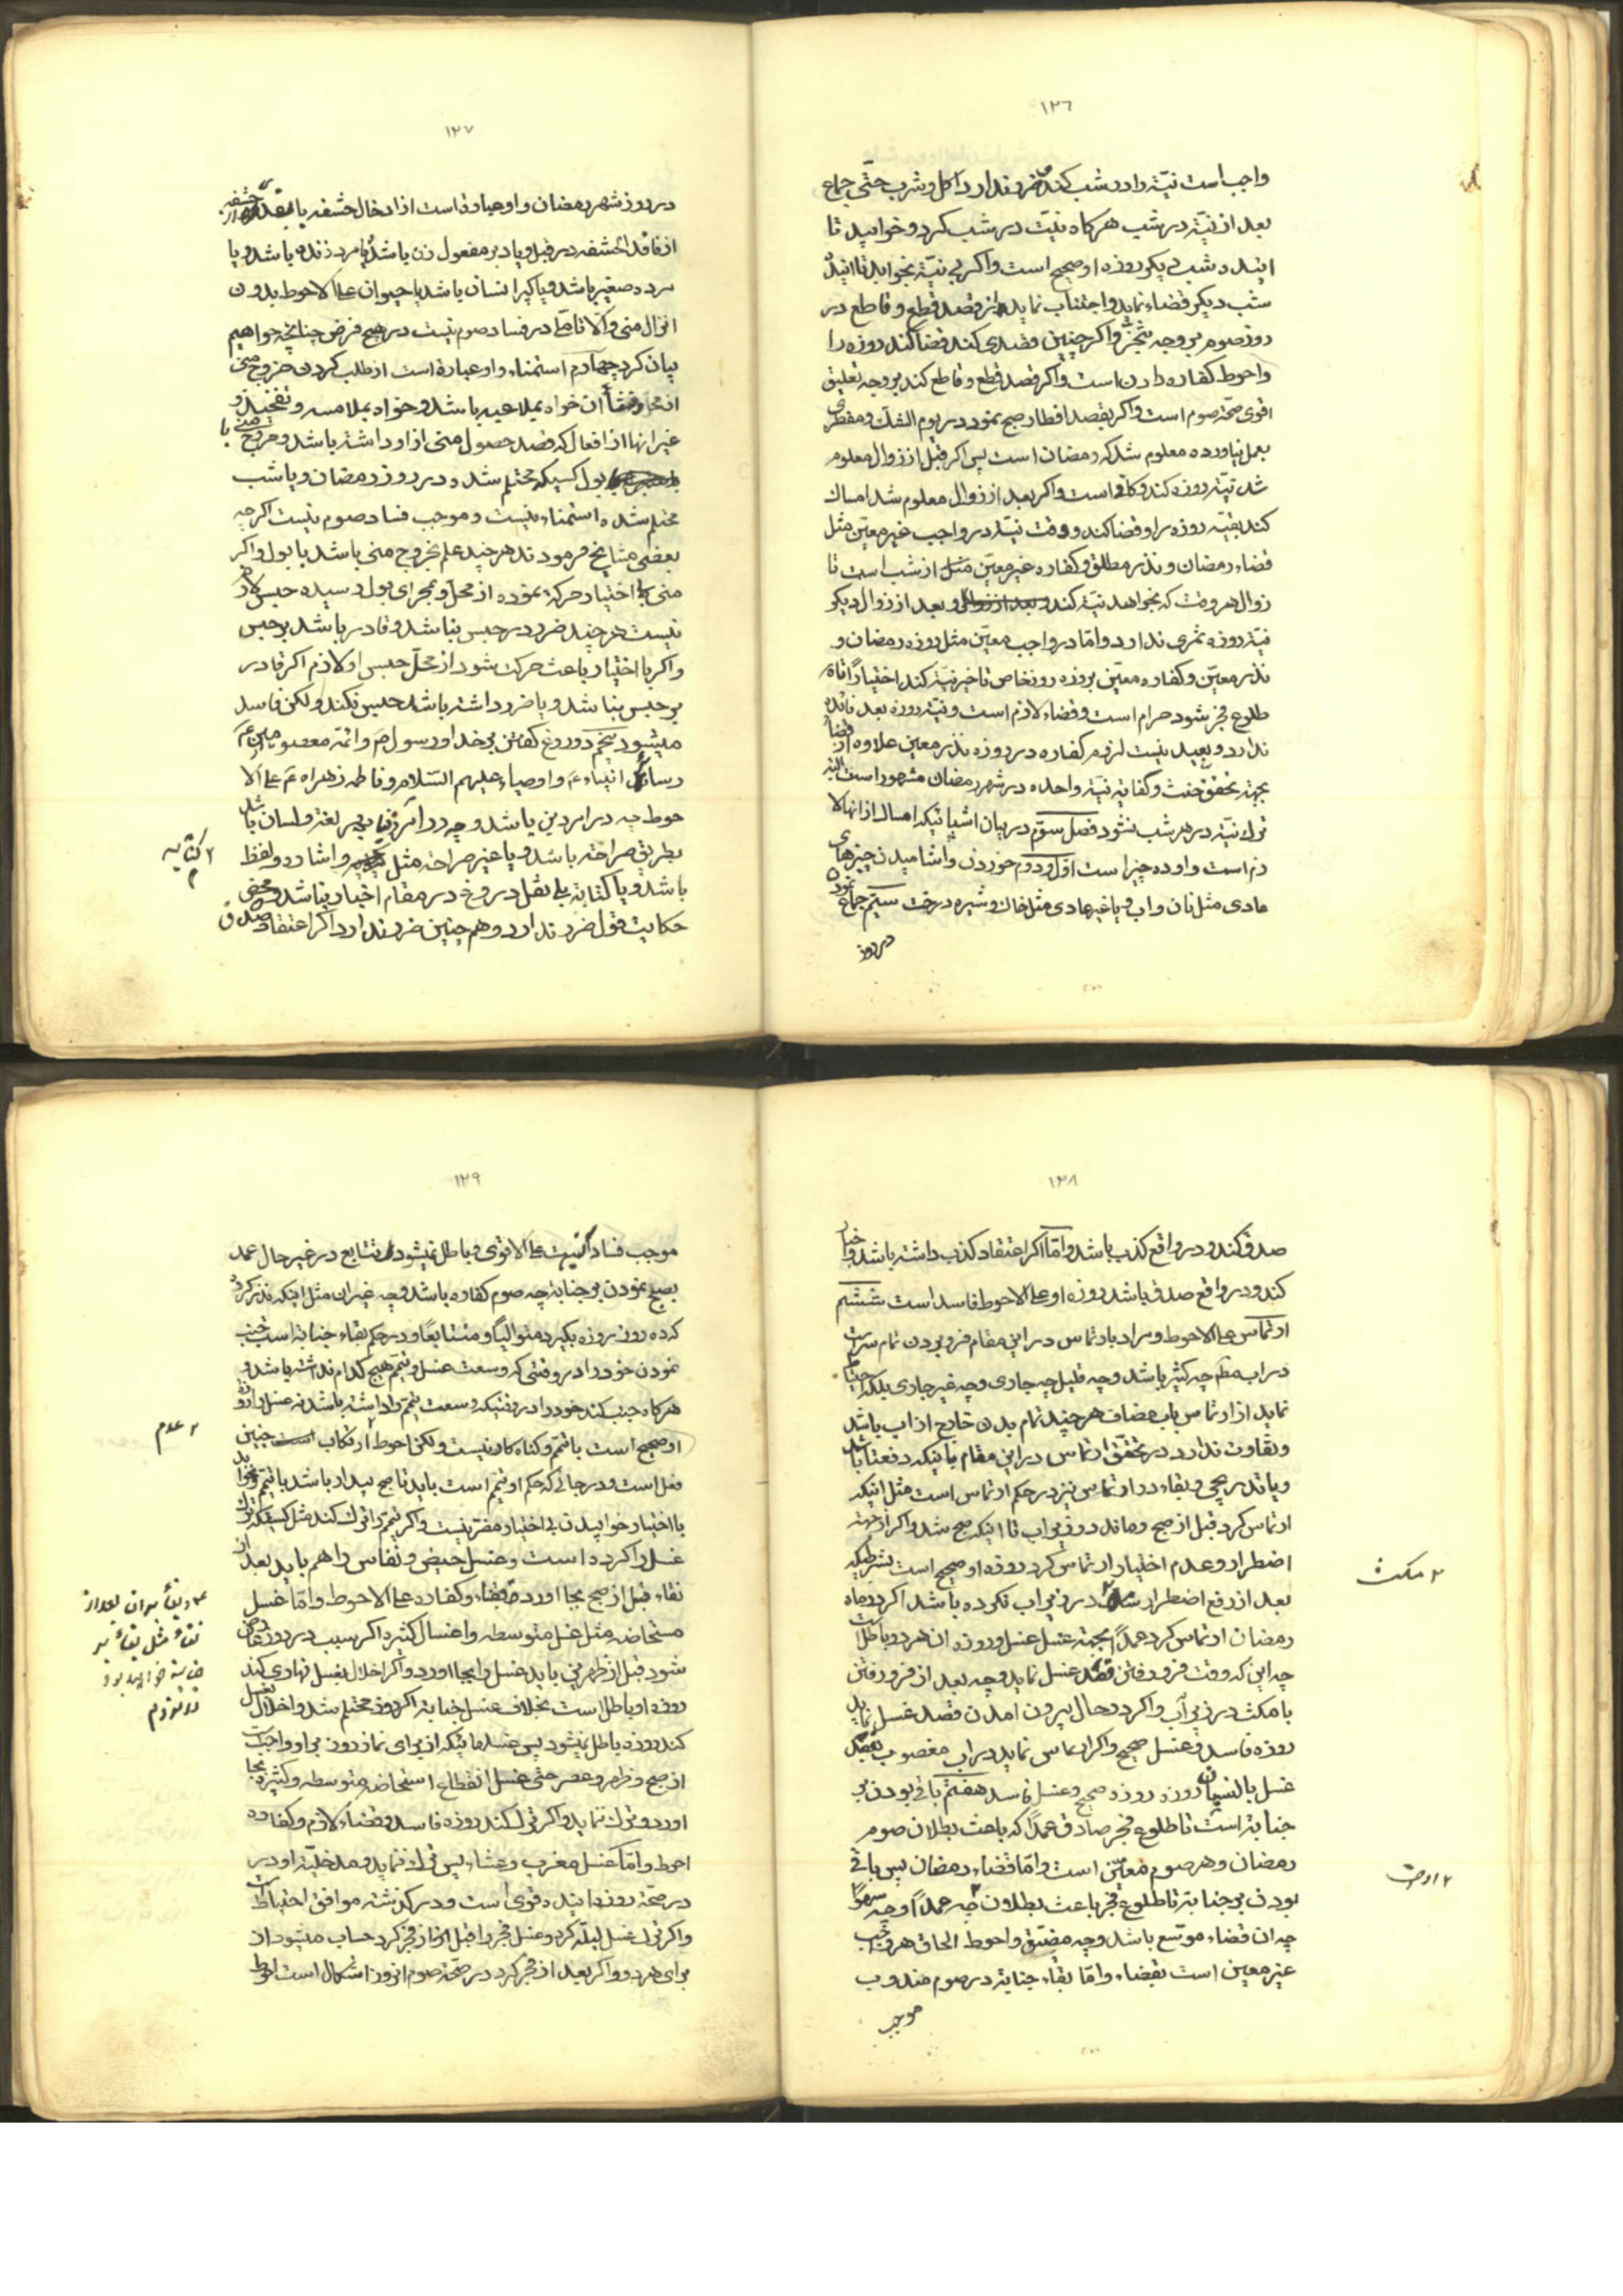 ١٢٦
واجب است نیّة را در شب کند و ضرر ندارد اکل و شرب حتّی جماع
بعد از نیّة در شب هرگاه نیّت در شب کرد و خوابید تا
شب دیگر روزه او صحیح است و اگر بی نیّة بخوابد تا
شب دیگر قضاء نماید و اجتناب نماید از قصد قطع و قاطع در
روز صوم بر وجه تنجّز و اگر چنین قصدی کند قضا کند روزه را
و احوط کفاره دادن است و اگر قصد قطع و قاطع کند بر وجه تعلیق
اقوی صحّة صوم است و اگر بقصد افطار صبح نمود در یوم الشک و مفطری
بعمل نیاورده معلوم شد که رمضان است پس اگر قبل از زوال معلوم
شد نیّة روزه کند و کافی است و اگر بعد از زوال معلوم شد امساک
کند بقیّه روزه را و قضا کند و وقت نیّة در واجب غیر معیّن مثل
قضاء رمضان و نذر مطلق و کفاره غیر معیّن از شب است تا
زوال هر وقت که بخواهد نیّة کند و بعد از زوال دیگر
نیّة روزه ثمری ندارد و امّا در واجب معیّن مثل روزه رمضان و
نذر معیّن و کفاره معیّن بروزه روز خاص تاخیر نیّة کند اختیاراً تا
طلوع فجر بشود حرام است و قضاء لازم است و نیّة روزه بعد فائده
ندارد و بعید نیست لزوم کفاره در روزه نذر معین علاوه از قضا
بجهة تحقق حنث و کفایة نیّة واحده در شهر رمضان مشهور است البته
ترک نیّة در هر شب نشود فصل سوّم در بیان اشیائیکه امساک از انها لا
زم است و او ده چیز است اوّل و دوّم خوردن و اشامیدن چیزهای
عادی مثل نان و اب و یا غیر عادی مثل خاک و شیره درخت سیّم جماع نمودن
در روز
١٢٧
در روز شهر رمضان و او عبارة است از ادخال حشفه یا بقدر حشفه از
از فاقد الحشفه در قبل و یا دبر مفعول زن باشد یا مرد زنده باشد و یا
مرده صغیر باشد و یا کبیر انسان باشد یا حیوان علی الاحوط بدون
انزال منی و الّا تامّلی در فساد صوم نیست در هیچ فرض چنانچه خواهیم
بیان کرد چهارم استمناء و او عبارة است از طلب کردن خروج منی
از محل و منشأ ان خواه بملاعبه باشد و خواه بملامسه و تفخیذ و
غیر انها از افعال که قصد حصول منی از او داشته باشد و خروج منی با
بول کسیکه محتلم شده در روز رمضان و یا شب
محتلم شده استمناء نیست و موجب فساد صوم نیست اگرچه
بعضی مشایخ فرمودند هرچند علم بخروج منی باشد با بول و اگر
منی بی اختیار حرکة نموده از محل و بمجرای بول رسیده حبس لازم
نیست هرچند ضرر در حبس نباشد و قادر باشد بر حبس
و اگر با اختیار باعث حرکت شود از محلّ حبس او لازم اگر قادر
بر حبس نباشد و یا ضرر داشته باشد حبس نکند ولکن فاسد
میشود پنجم دروغ گفتن بر خدا و رسول ص و ائمه معصومین ع
و سائر انبیاء ع و اوصیاء علیهم السّلام و فاطمه زهراء ع علی الا
حوط چه در امر دین باشد و چه در امر دنیا بهر لغة و لسان باشد
بطریق صراحة باشد و یا غیر صراحة مثل و اشاره و لفظ
باشد و یا کتابة بلی نقل دروغ در مقام اخبار نباشد و محض
حکایت قول ضرر ندارد و هم چنین ضرر ندارد اگر اعتقاد صدق
٢ کنایه م
١٢٨
صدق کند و در واقع کذب باشد و امّا اگر اعتقاد کذب داشته باشد و اخبار
کند و در واقع صدق باشد روزه او علی الاحوط فاسد است ششم
ارتماس علی الاحوط و مراد بارتماس در این مقام فرو بردن تمام سر است
در اب مطلق چه کثیر باشد و چه قلیل چه جاری و چه غیر جاری بلکه اجتناب
نماید از ارتماس باب مضاف هرچند تمام بدن خارج از اب باشد
و تفاوت ندارد در تحقّق ارتماس در این مقام باینکه دفعتا باشد
و یا تدریجی و بقاء در ارتماس نیز در حکم ارتماس است مثل اینکه
ارتماس کرد قبل از صبح و ماند در زیر اب تا اینکه صبح شد و اگر از جهة
اضطرار و عدم اختیار ارتماس کرد روزه او صحیح است بشرطیکه
بعد از رفع اضطرار در زیر اب نکرده باشد اگر در ماه
رمضان ارتماس کرد عمداً بجهة غسل غسل و روزه ان هر دو باطل است
چه این که وقت فرو رفتن قصد غسل نماید و چه بعد از فرو رفتن
با مکث در زیر آب و اگر در حال بیرون امدن قصد غسل نماید
روزه فاسد و غسل صحیح و اگر ارتماس نماید در اب مغصوب بقصد
غسل با نسیان روزه روزه صحیح و غسل فاسد هفتم باقی بودن بر
جنابة است تا طلوع فجر صادق عمداً که باعث بطلان صوم
رمضان و هر صوم معیّن است و امّا قضاء رمضان پس باقی
بودن بر جنابة تا طلوع فجر باعث بطلان چه عمداً و چه سهواً
چه ان قضاء موسّع باشد و چه مضیّق و احوط الحاق هر واجب
غیر معین است بقضاء و امّا بقاء جنابة در صوم مندوب
موجب
٢ مکث
٢ اوست
١٢٩
موجب فساد نیست علی الاقوی و باطل نمیشود تتابع در غیر حال عمد
بصبح نمودن بر جنابة چه صوم کفاره باشد و چه غیر ان مثل اینکه نذر کرده
که ده روز روزه بگیرد متوالیاً و متتابعاً و در حکم بقاء جنابة است جنب
نمودن خود را در وقتی که وسعت غسل و تیمّم هیچ کدام نداشته باشد و
هرگاه جنب کند خود را در وقتیکه وسعت تیمّم را داشته باشد نه غسل را روزه
او صحیح است با تیمّم و گناه کار نیست ولکن احوط ارتکاب چنین
فعل است و در جائی که حکم او تیمّم است باید تا صبح بیدار باشد با تیمّم و نخوابد
با اختیار خوابیدن بی اختیار مضرّ نیست و اگر تیمّم را ترک کند مثل کسیکه ترک
غسل را کرده است و غسل حیض و نفاس را هم باید بعد از
نقاء قبل از صبح بجا اورد و قضاء و کفاره علی الاحوط و امّا غسل
مستحاضه مثل غسل متوسطه و اغسال کثیره اگر سبب در روز عارض
شود قبل از ظهرین باید غسل را بجا اورد و اگر اخلال بغسل نهاری کند
روزه او باطل است بخلاف غسل جنابة اگر روز محتلم شد و اخلال بغسل
کند روزه باطل نمیشود پس غسلهائیکه از برای نماز روز بر او واجب است
از صبح و ظهر و عصر حتی غسل انقطاع استحاضه متوسطه و کثیره بجا
اورد و ترک ننماید و اگر ترک کند روزه فاسد و قضاء لازم و کفاره
احوط و امّا غسل مغرب و عشاء پس ترک ننماید و مدخلیّة او در
در صحّة روزه اینده قوی است و در گذشته موافق احتیاط است
و اگر ترک غسل لیلیّه کرد و غسل فجر را قبل از فجر کرد حساب میشود از
برای هر دو و اگر بعد از فجر کرد در صحّة صوم انروز اشکال است احوط
٢ عدم
نقاء مثل بقاء بر